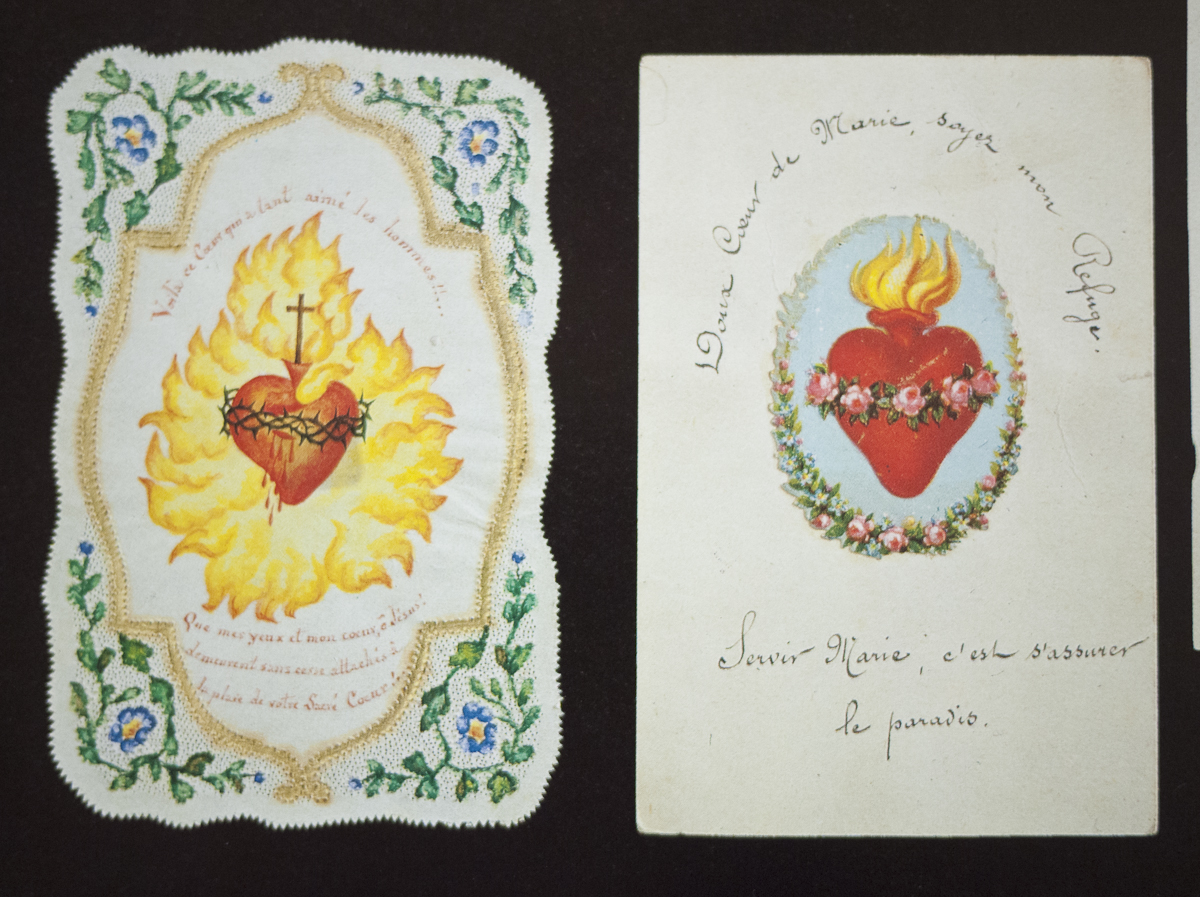 Voilà ce Cœur qui a tant aimé les hommes!...
Que mes yeux et mon cœur, ô Jésus!
demeurent sans cesse attachés à
la plaie de votre Sacré Cœur!
Doux Cœur de Marie, soyez mon Refuge.
Servir Marie, c'est s'assurer
le paradis.